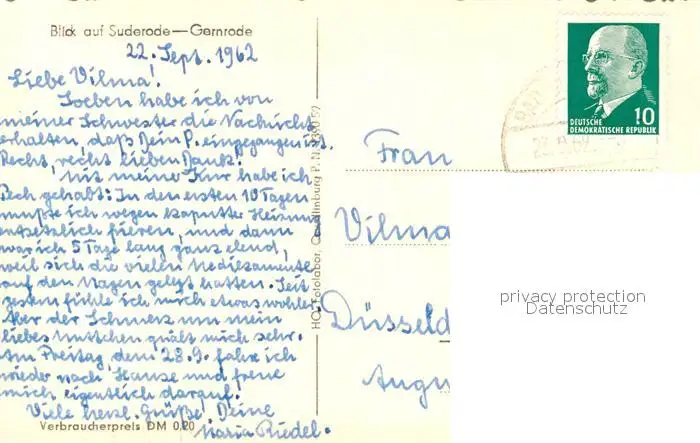 Blick auf Suderode—Gernrode
22. Sept. 1962
Liebe Vilma!
Soeben habe ich von
meiner Schwester die Nachricht
erhalten, daß Dein P. eingegangen ist.
Recht, recht lieben Dank!
Mit meiner Kur habe ich
Pech gehabt: In den ersten 10 Tagen
mußte ich wegen kaputter Heizung
entsetzlich frieren, und dann
war ich 5 Tage lang ganz elend,
weil sich die vielen Medikamente
auf den Magen gelegt hatten. Seit
gestern fühle ich mich etwas wohler.
Aber der Schmerz um mein
liebes Muttchen quält mich sehr.
Am Freitag dem 28.9. fahre ich
wieder nach Hause und freue
mich eigentlich darauf.
Viele herzl. Grüße! Deine
Maria Riedel.
Verbraucherpreis DM 0,20
HO-Fotolabor, Quedlinburg
10
DEUTSCHE
DEMOKRATISCHE REPUBLIK
Frau
Vilma
Düsseld
Augu
privacy protection
Datenschutz